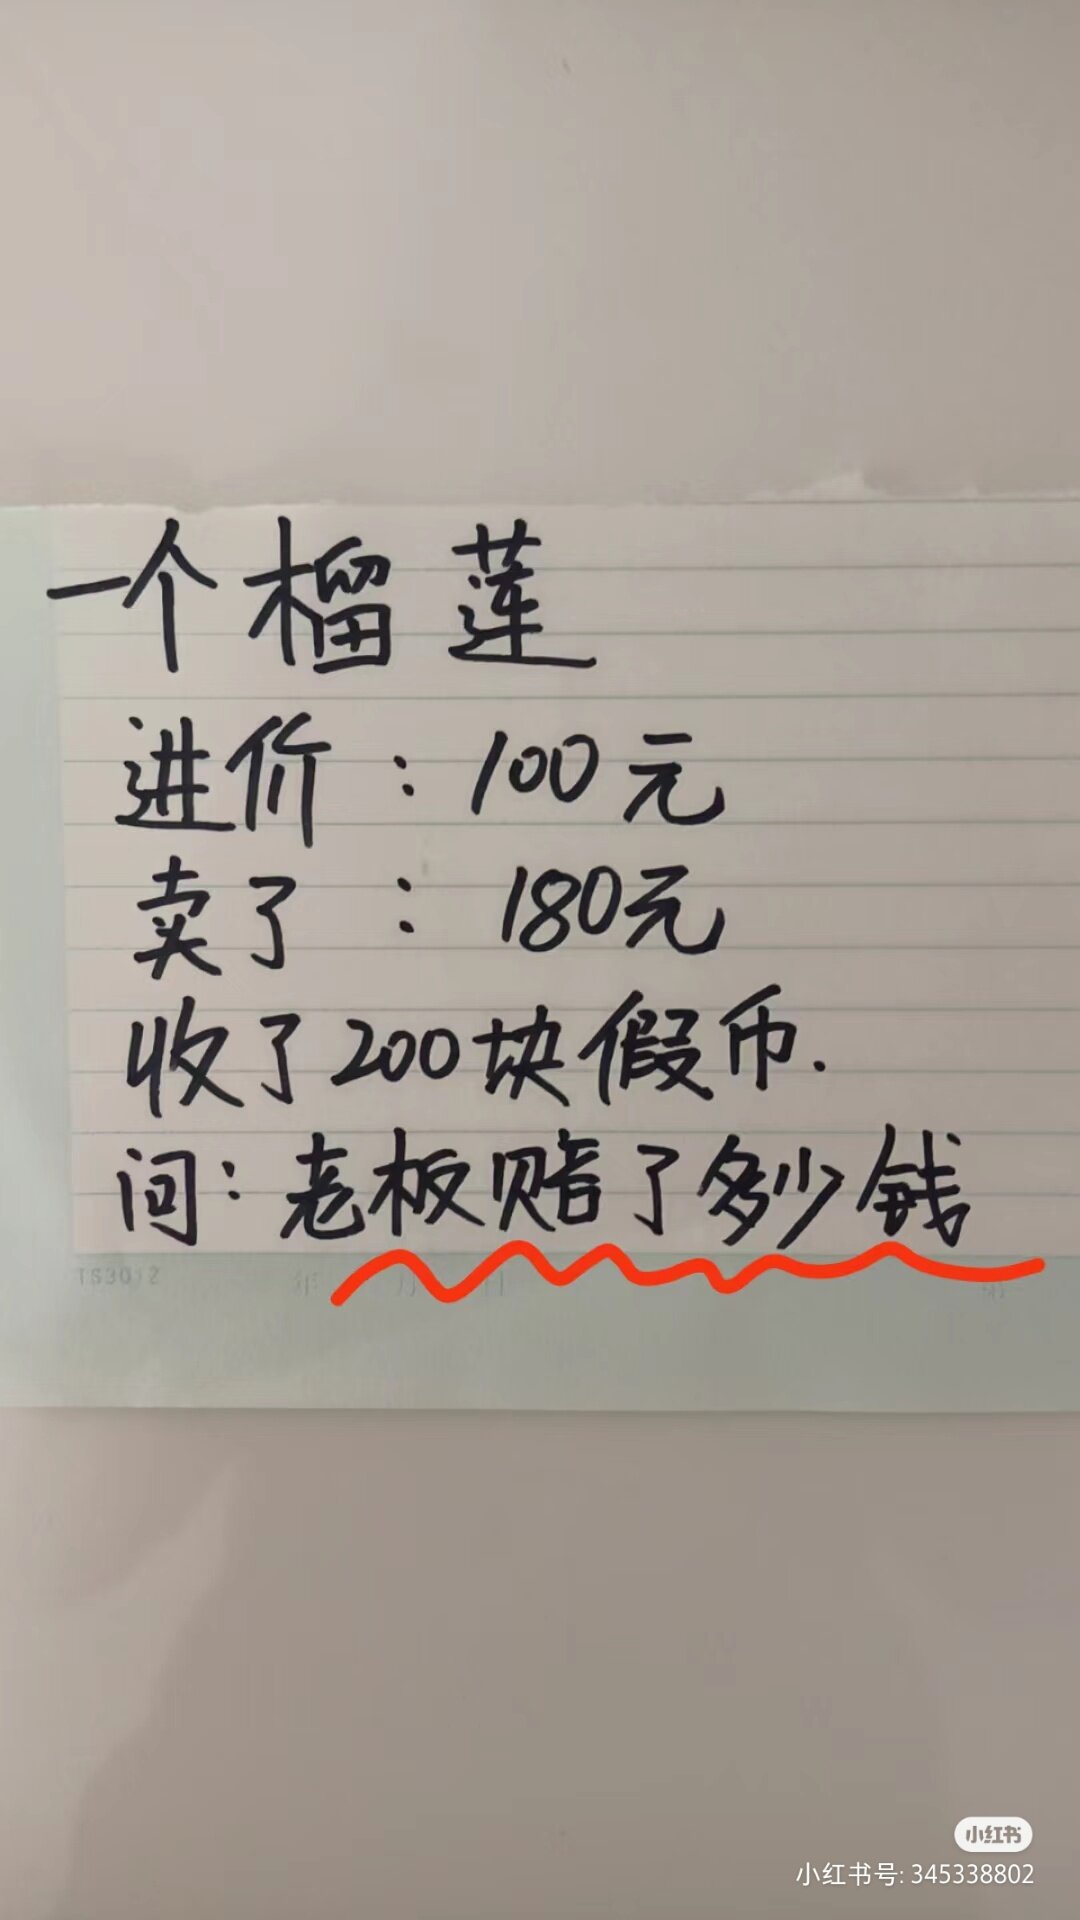 一个榴莲
进价：100元
卖了：180元
收了200块假币.
问：老板赔了多少钱
TS3012
年 月 日
小红书
小红书号: 345338802